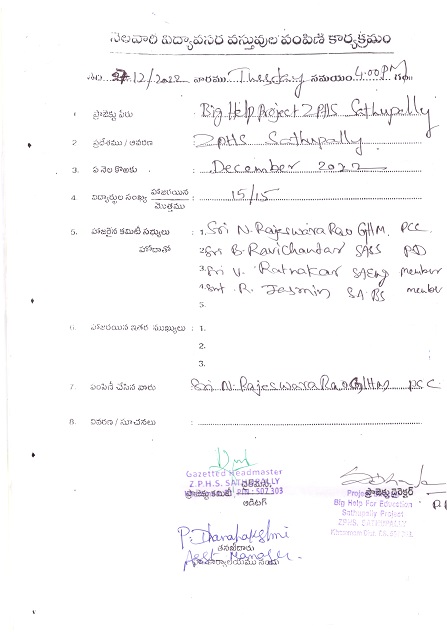 నెలవారి విద్యావసర వస్తువుల పంపిణి కార్యక్రమం
తేది 27/12/2022 వారము Tuesday సమయం 4:00 PM గం॥
1. ప్రాజెక్టు పేరు Big Help Project ZPHS Sathupally
2. ప్రదేశము / ఆవరణ ZPHS Sathupally
3. ఏ నెల కొఱకు December 2022
4. విద్యార్థుల సంఖ్య హాజరయిన / మొత్తము 15/15
5. హాజరైన కమిటీ సభ్యులు హోదాతో
1. Sri N. Rajeswara Rao GHM. PCC.
2. Sri B. Ravichandar SASS PD
3. Sri V. Ratnakar SAEng member
4. Smt R. Jasmin SA BS member
5.
6. హాజరయిన ఇతర ముఖ్యులు : 1.
2.
3.
7. పంపిణీ చేసిన వారు Sri N. Rajeswara Rao GHM PCC.
8. వివరణ / సూచనలు :
Gazetted Headmaster
Z.P.H.S. SATHUPALLY
ప్రాజెక్టు కమిటీ 507 303
ఆడిటర్
ప్రాజెక్టు డైరెక్టర్
Big Help For Education
Sathupally Project
Z.P.H.S. SATHUPALLY
P. Dhanalakshmi
Asst Manager